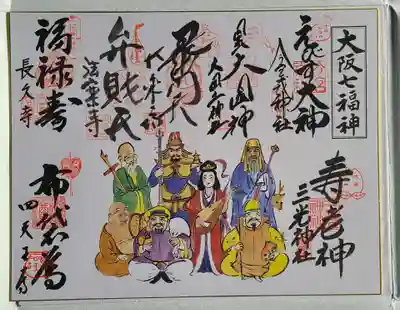 大阪七福神
えびす大神
今宮戎神社
大国主神
大国主神社
毘沙門天
大乗坊
弁財天
法案寺
福禄寿
長久寺
寿老神
三光神社
布袋尊
四天王寺